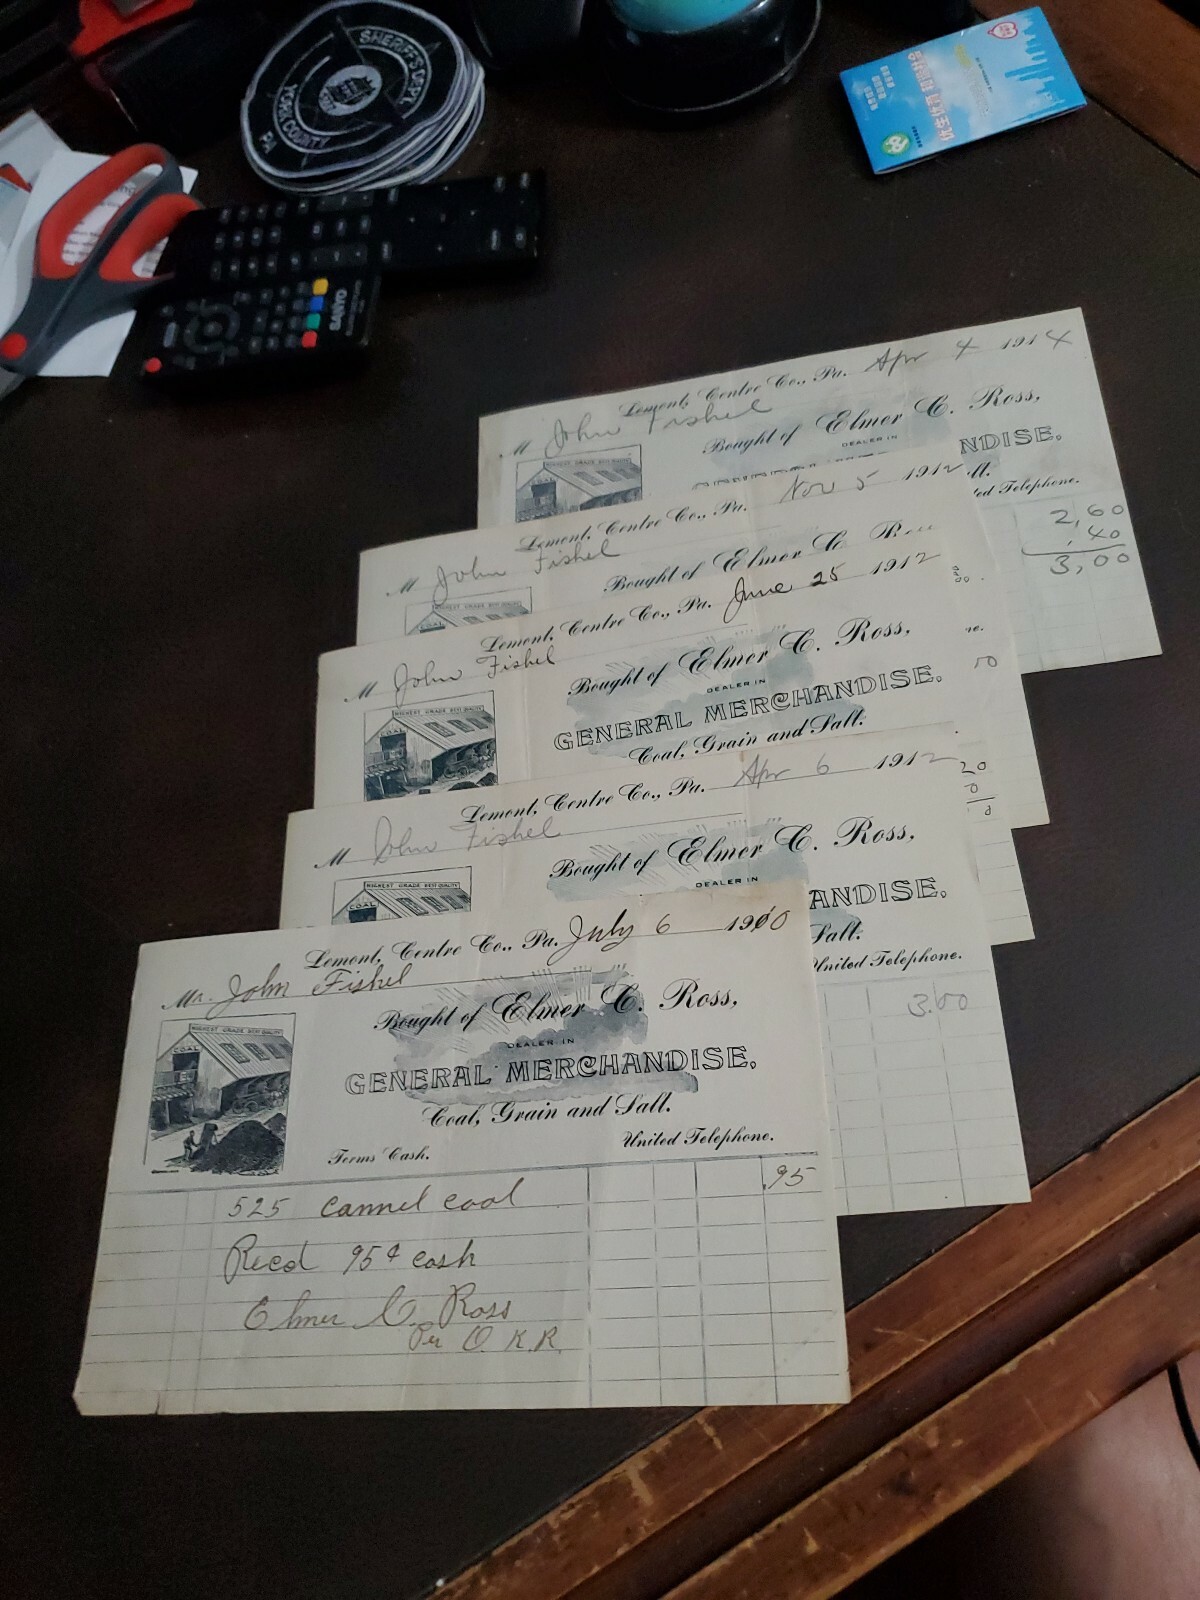 SHERIFF'S DEPT.
YORK COUNTY
PA
SANYO
Lemont, Centre Co., Pa. Apr 4 1914
M John Fishel
Bought of Elmer C. Ross,
DEALER IN
NDISE.
lt.
ted Telephone.
2,60
.40
3,00
HIGHEST GRADE BEST QUALITY
Lemont, Centre Co., Pa. Nov 5 1912
M John Fishel
Bought of Elmer C. R
COAL
Lemont, Centre Co., Pa. June 25 1912
M John Fishel
Bought of Elmer C. Ross,
DEALER IN
GENERAL MERCHANDISE.
Coal, Grain and Salt.
HIGHEST GRADE BEST QUALITY
COAL
50
20
Lemont, Centre Co., Pa. Apr 6 1912
M John Fishel
Bought of Elmer C. Ross,
DEALER IN
ANDISE.
Salt.
United Telephone.
3.00
HIGHEST GRADE BEST QUALITY
COAL
Lemont, Centre Co., Pa. July 6 1910
Mr. John Fishel
Bought of Elmer C. Ross,
DEALER IN
GENERAL MERCHANDISE.
Coal, Grain and Salt.
Terms Cash. United Telephone.
HIGHEST GRADE BEST QUALITY
COAL
525 Cannel coal .95
Recd 95¢ cash
Elmer C. Ross
Per O.K.R.